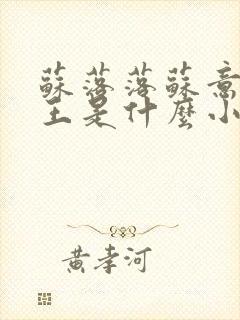 蘇落落蘇意
主是什麼小
黃孝河